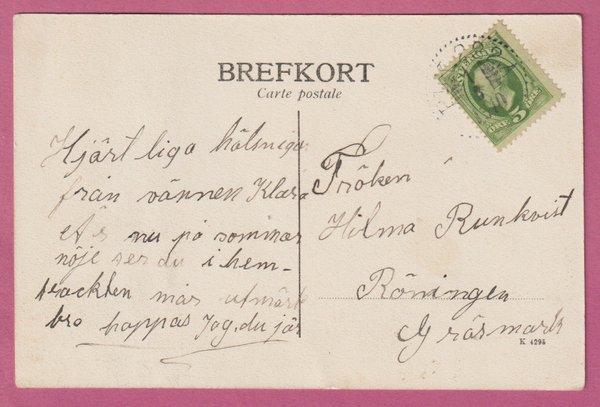 BREFKORT
Carte postale
Hjärtliga hälsninga
från vännen Klara
är nu på sommar
nöje ser du i hem-
trackten mår utmärkt
bro hoppas Jag, du jär
Fröken
Hilma Runkvist
Röningen
Gräsmark
K 4294
SVERIGE
5 ÖRE